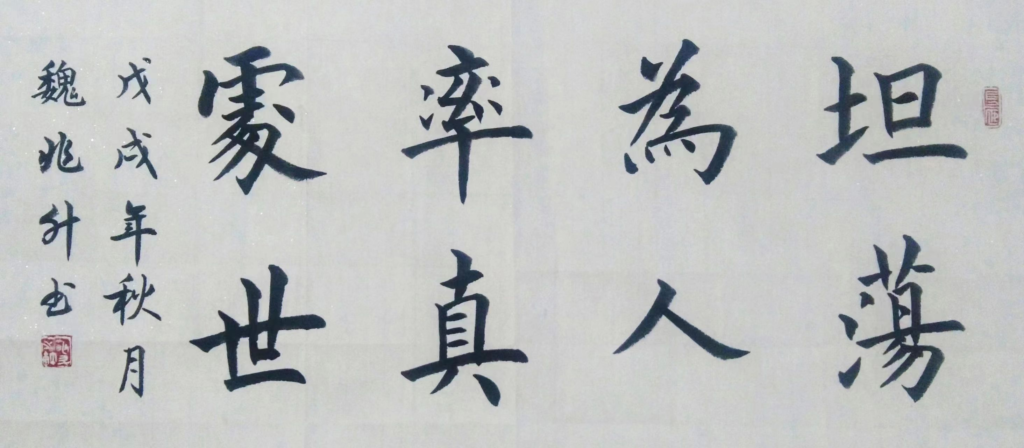 坦蕩
為人
率真
處世
戊戌年秋月
魏兆升书